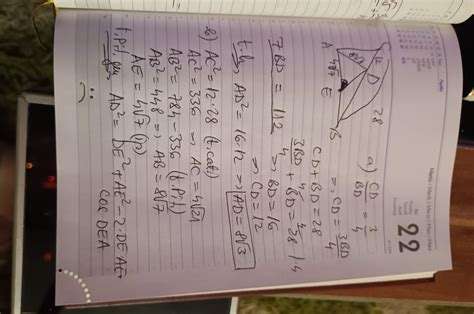 22
28
12
D
8√3
A 4√7 E
B
a) CD/BD = 3/4 => CD = 3BD/4
CD + BD = 28
3BD/4 + BD = 28 | · 4
7BD = 112 => BD = 16
=> CD = 12
t.h => AD² = 16·12 => AD = 8√3
b) AC² = 12·28 (t. cat)
AC² = 336 => AC = 4√21
AB² = 784 - 336 (t. Pit)
AB² = 448 => AB = 8√7
AE = 4√7 (ip)
t. Pit. gen AD² = DE² + AE² - 2·DE·AE·
cos DEA